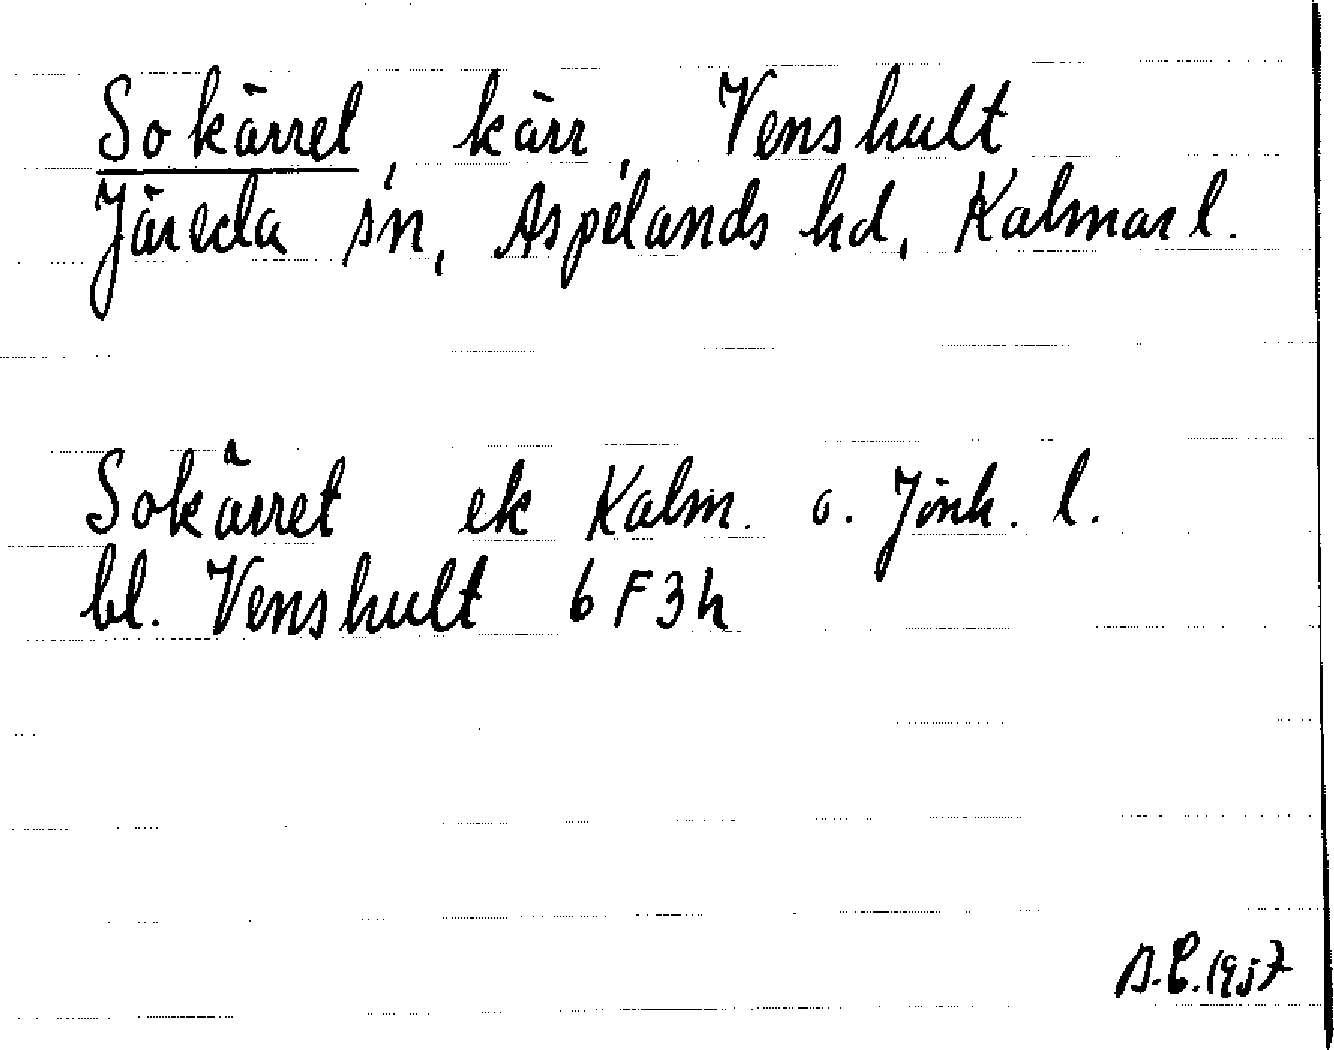 Sokärret, kärr, Venshult
Järeda sn, Aspelands hd, Kalmar l.
Sokärret ek Kalm. o. Jönk. l.
bl. Venshult 6F3h
A.E. 1957